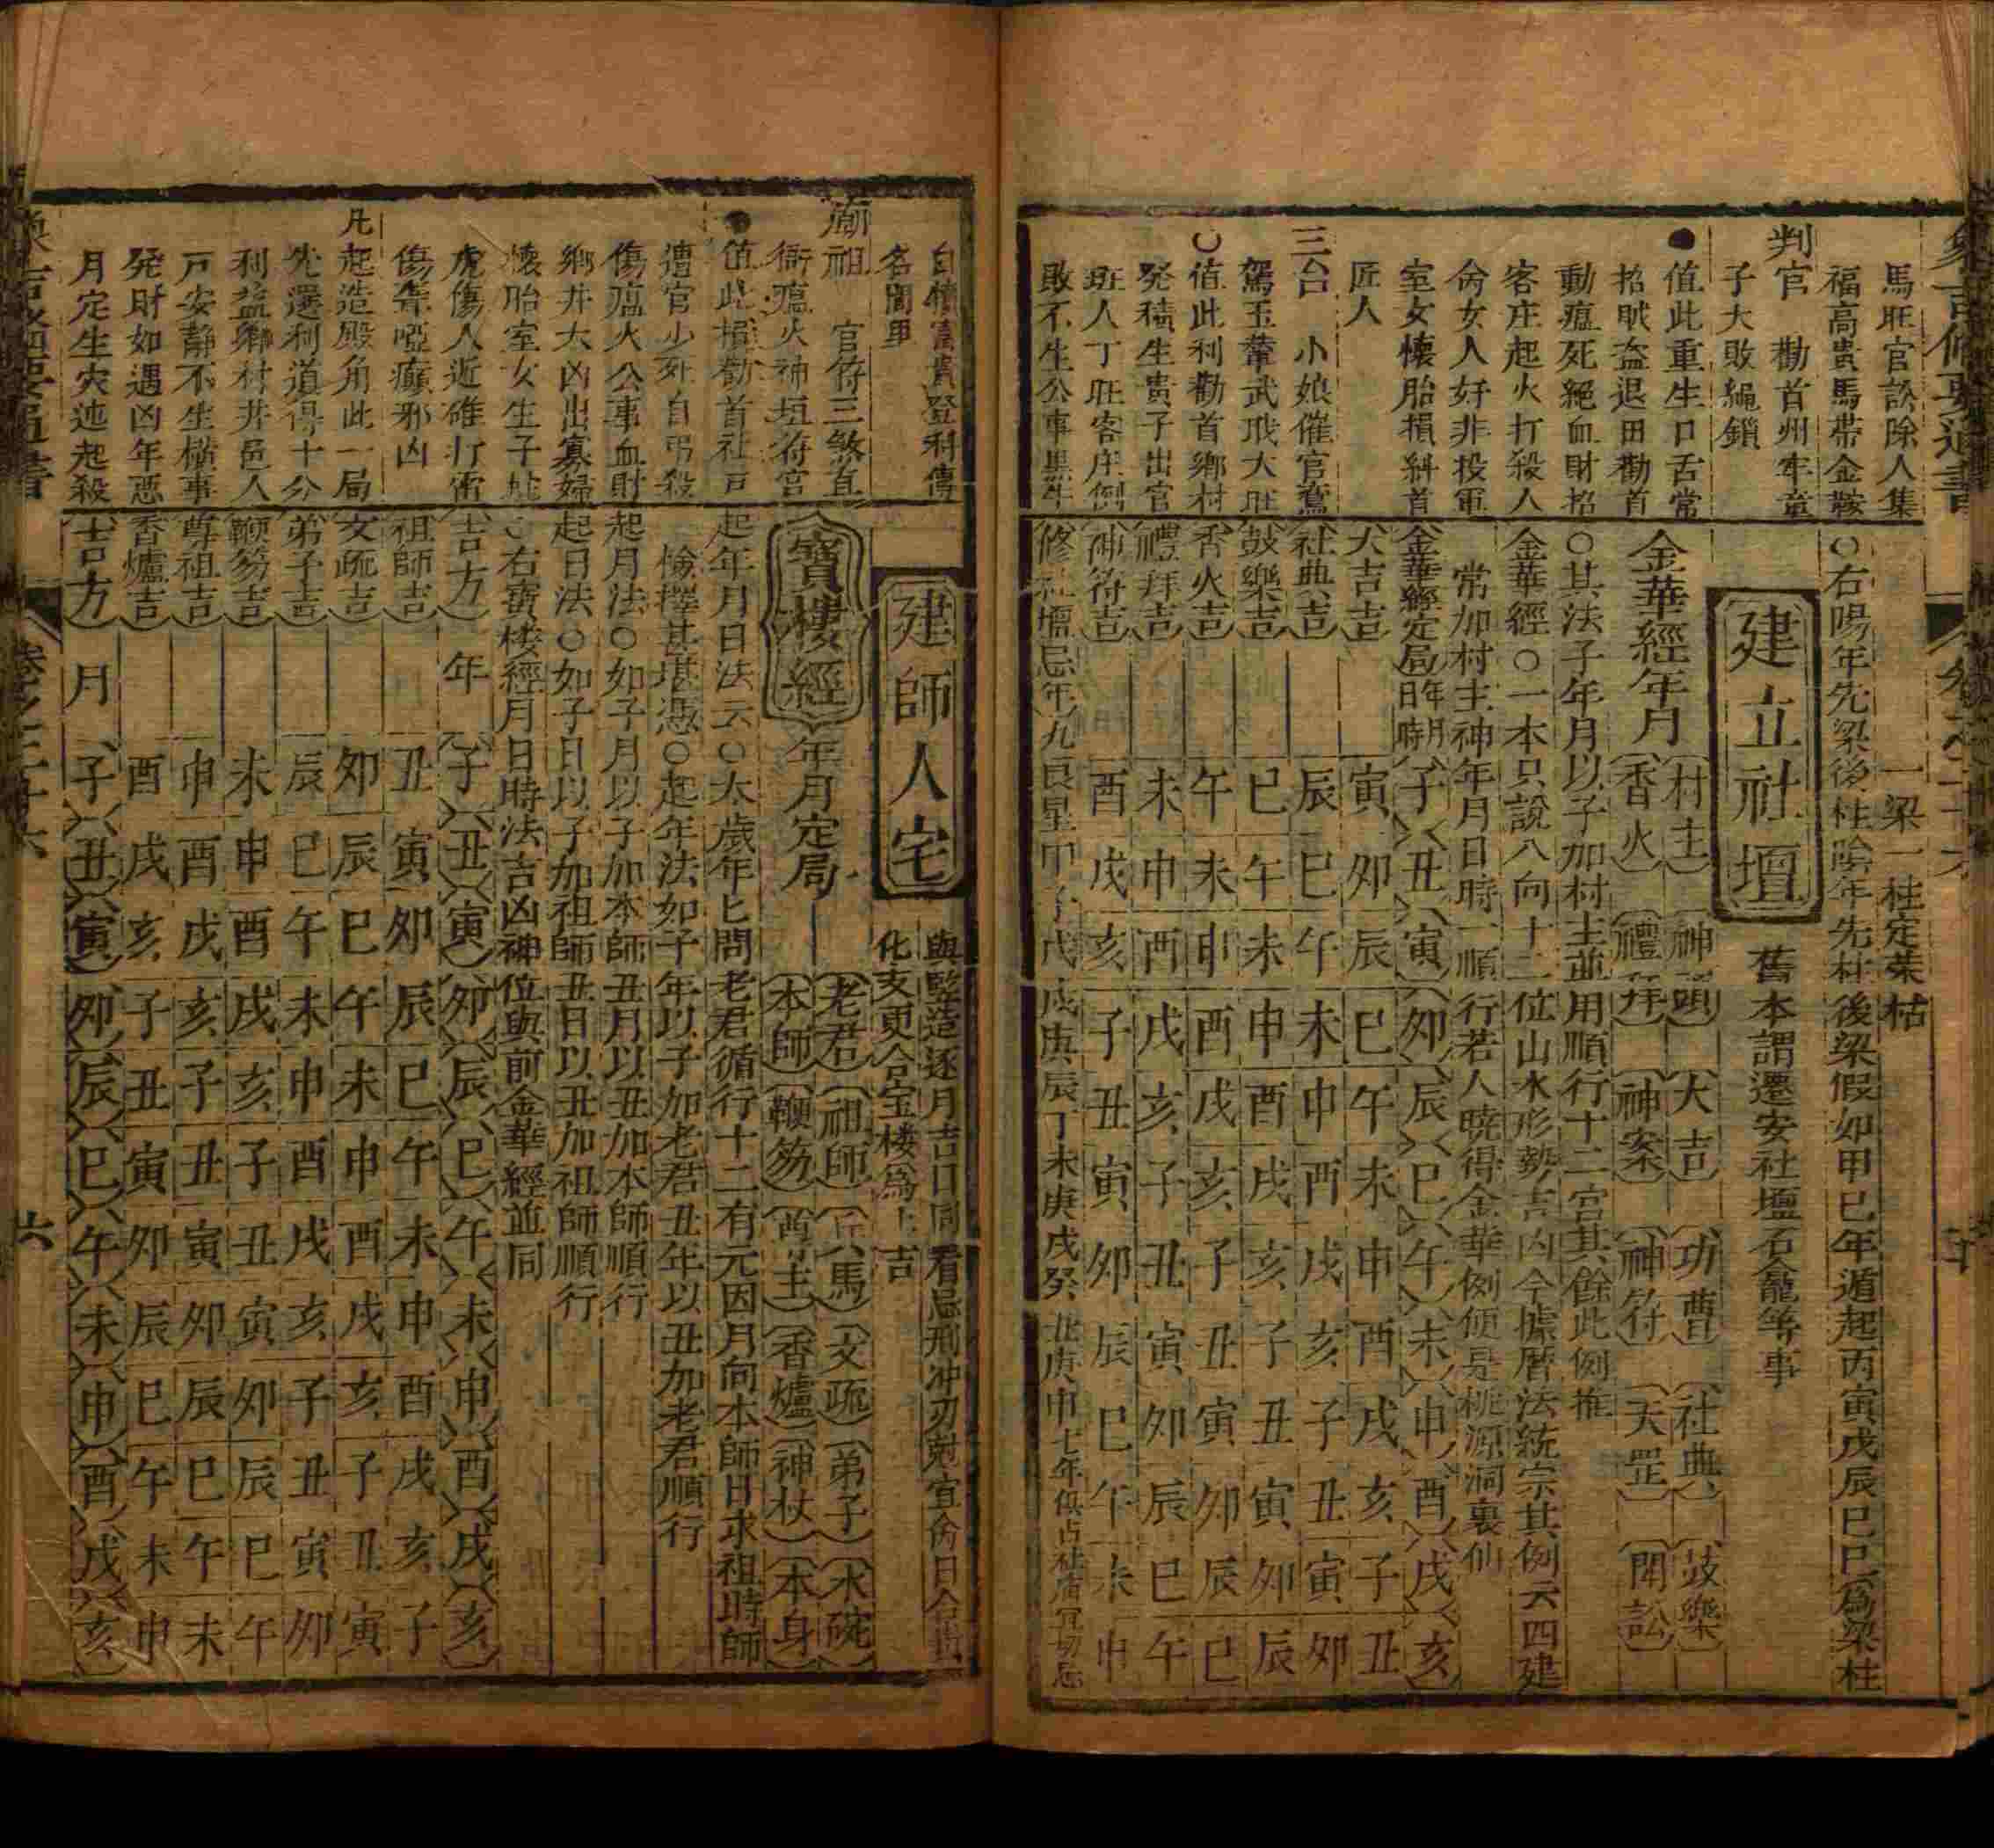 馬旺官訟除人集
福高貴馬帶金鞍
判官　勸首州牢童
子大敗繩鎖
●值此重生口舌常
招賊盜退田勸首
動瘟死絕血財招
客庄起火打殺人
舍女人奸非投軍
室女懷胎損斜首
匠人
三台　小娘催官鸞
駕玉輦武戕大旺
○值此利勸首鄉村
発積生貴子出官
班人丁旺客庄例
敗不生公事
一梁一柱定荣枯
○右陽年先梁後柱陰年先柱後梁假如甲巳年遁起丙寅戊辰巳巳爲梁柱
建立社壇
舊本謂遷安社壇石龕等事
金華經年月
村主　神頭　大吉　功曹　社典　鼓樂
香火　禮拜　神案　神符　天罡　聞訟
○其法子年月以子加村主並用順行十二宫其餘此例推
金華經○一本只說八向十二位山水形勢吉凶今據曆法統宗其例云四建
常加村主神年月日時一順行若人曉得金華例便是桃源洞裏仙
金華經定局年月日時　子　丑　寅　卯　辰　巳　午　未　申　酉　戌　亥
大吉吉　寅　卯　辰　巳　午　未　申　酉　戌　亥　子　丑
社典吉　辰　巳　午　未　申　酉　戌　亥　子　丑　寅　卯
鼓樂吉　巳　午　未　申　酉　戌　亥　子　丑　寅　卯　辰
香火吉　午　未　申　酉　戌　亥　子　丑　寅　卯　辰　巳
禮拜吉　未　申　酉　戌　亥　子　丑　寅　卯　辰　巳　午
神符吉　酉　戌　亥　子　丑　寅　卯　辰　巳　午　未　申
修社壇忌年九良星
自積富貴登科傳
名閭里
廟祖　官符三煞宜
衙瘟火神垣符宫
●值此損勸首社戸
遭官少死自弔殺
傷瘟火公事血財
鄉井大凶出寡婦
懷胎室女生子
虎傷人近碓打宙
傷聾啞癲邪凶
凡起造殿角此一局
先選利道得十分
利益鄉村井邑人
戸安靜不生橫事
発財如遇凶年惡
月定生灾迍起殺
建師人宅
與竪造逐月吉日同看忌刑冲刃
化支更合宝楼爲上吉
寶樓經
年月定局
老君　祖師　兵馬　文疏　弟子　水碗
本師　鞭笏　香爐　神杖　本身
起年月日法云○太歲年上問老君循行十二有元因月向本師日求祖時師
愉擇甚堪憑○起年法如子年以子加老君丑年以丑加老君順行
起月法○如子月以子加本師丑月以丑加本師順行
起日法○如子日以子加祖師丑日以丑加祖師順行
○右寳楼經月日時法吉凶神位與前金華經並同
吉方　年　子　丑　寅　卯　辰　巳　午　未　申　酉　戌　亥
祖師吉　丑　寅　卯　辰　巳　午　未　申　酉　戌　亥　子
文疏吉　卯　辰　巳　午　未　申　酉　戌　亥　子　丑　寅
弟子吉　辰　巳　午　未　申　酉　戌　亥　子　丑　寅　卯
鞭笏吉　未　申　酉　戌　亥　子　丑　寅　卯　辰　巳　午
尊祖吉　申　酉　戌　亥　子　丑　寅　卯　辰　巳　午　未
香爐吉　酉　戌　亥　子　丑　寅　卯　辰　巳　午　未　申
吉方　月　子　丑　寅　卯　辰　巳　午　未　申　酉　戌　亥
六